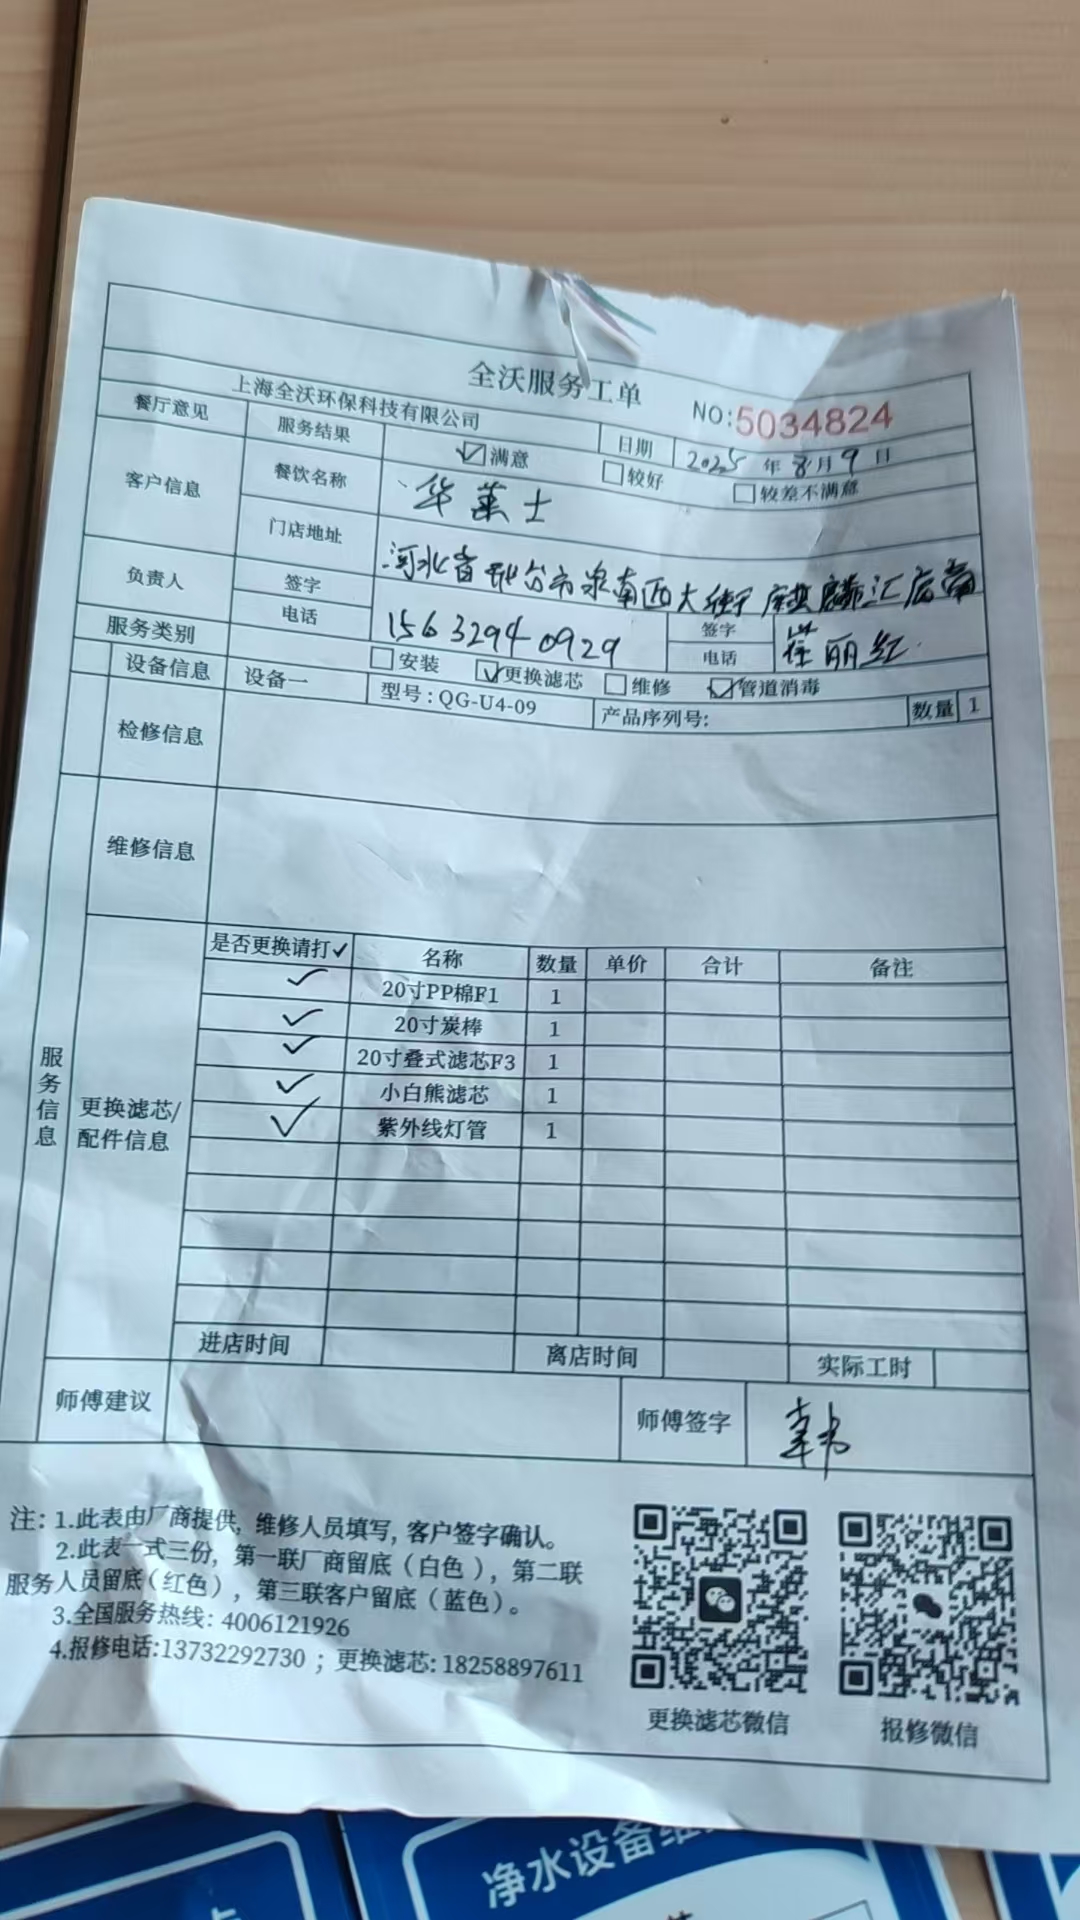 全沃服务工单
NO:5034824
上海全沃环保科技有限公司
日期 2025 年 8 月 9 日
餐厅意见 服务结果 ☑满意 □较好 □较差不满意
客户信息 餐饮名称 华莱士
门店地址 河北省邢台市泉南西大街 麒麟汇店
负责人 签字 签字 崔丽红
电话 15632940929 电话
服务类别 □安装 ☑更换滤芯 □维修 ☑管道消毒
设备信息 设备一 型号:QG-U4-09 产品序列号: 数量 1
检修信息
维修信息
服务信息
更换滤芯/配件信息
是否更换请打✓ 名称 数量 单价 合计 备注
✓ 20寸PP棉F1 1
✓ 20寸炭棒 1
✓ 20寸叠式滤芯F3 1
✓ 小白熊滤芯 1
✓ 紫外线灯管 1
进店时间 离店时间 实际工时
师傅建议 师傅签字 韩
注: 1.此表由厂商提供, 维修人员填写, 客户签字确认。
2.此表一式三份, 第一联厂商留底(白色), 第二联
服务人员留底(红色), 第三联客户留底(蓝色)。
3.全国服务热线: 4006121926
4.报修电话:13732292730 ; 更换滤芯: 18258897611
更换滤芯微信
报修微信
净水设备维